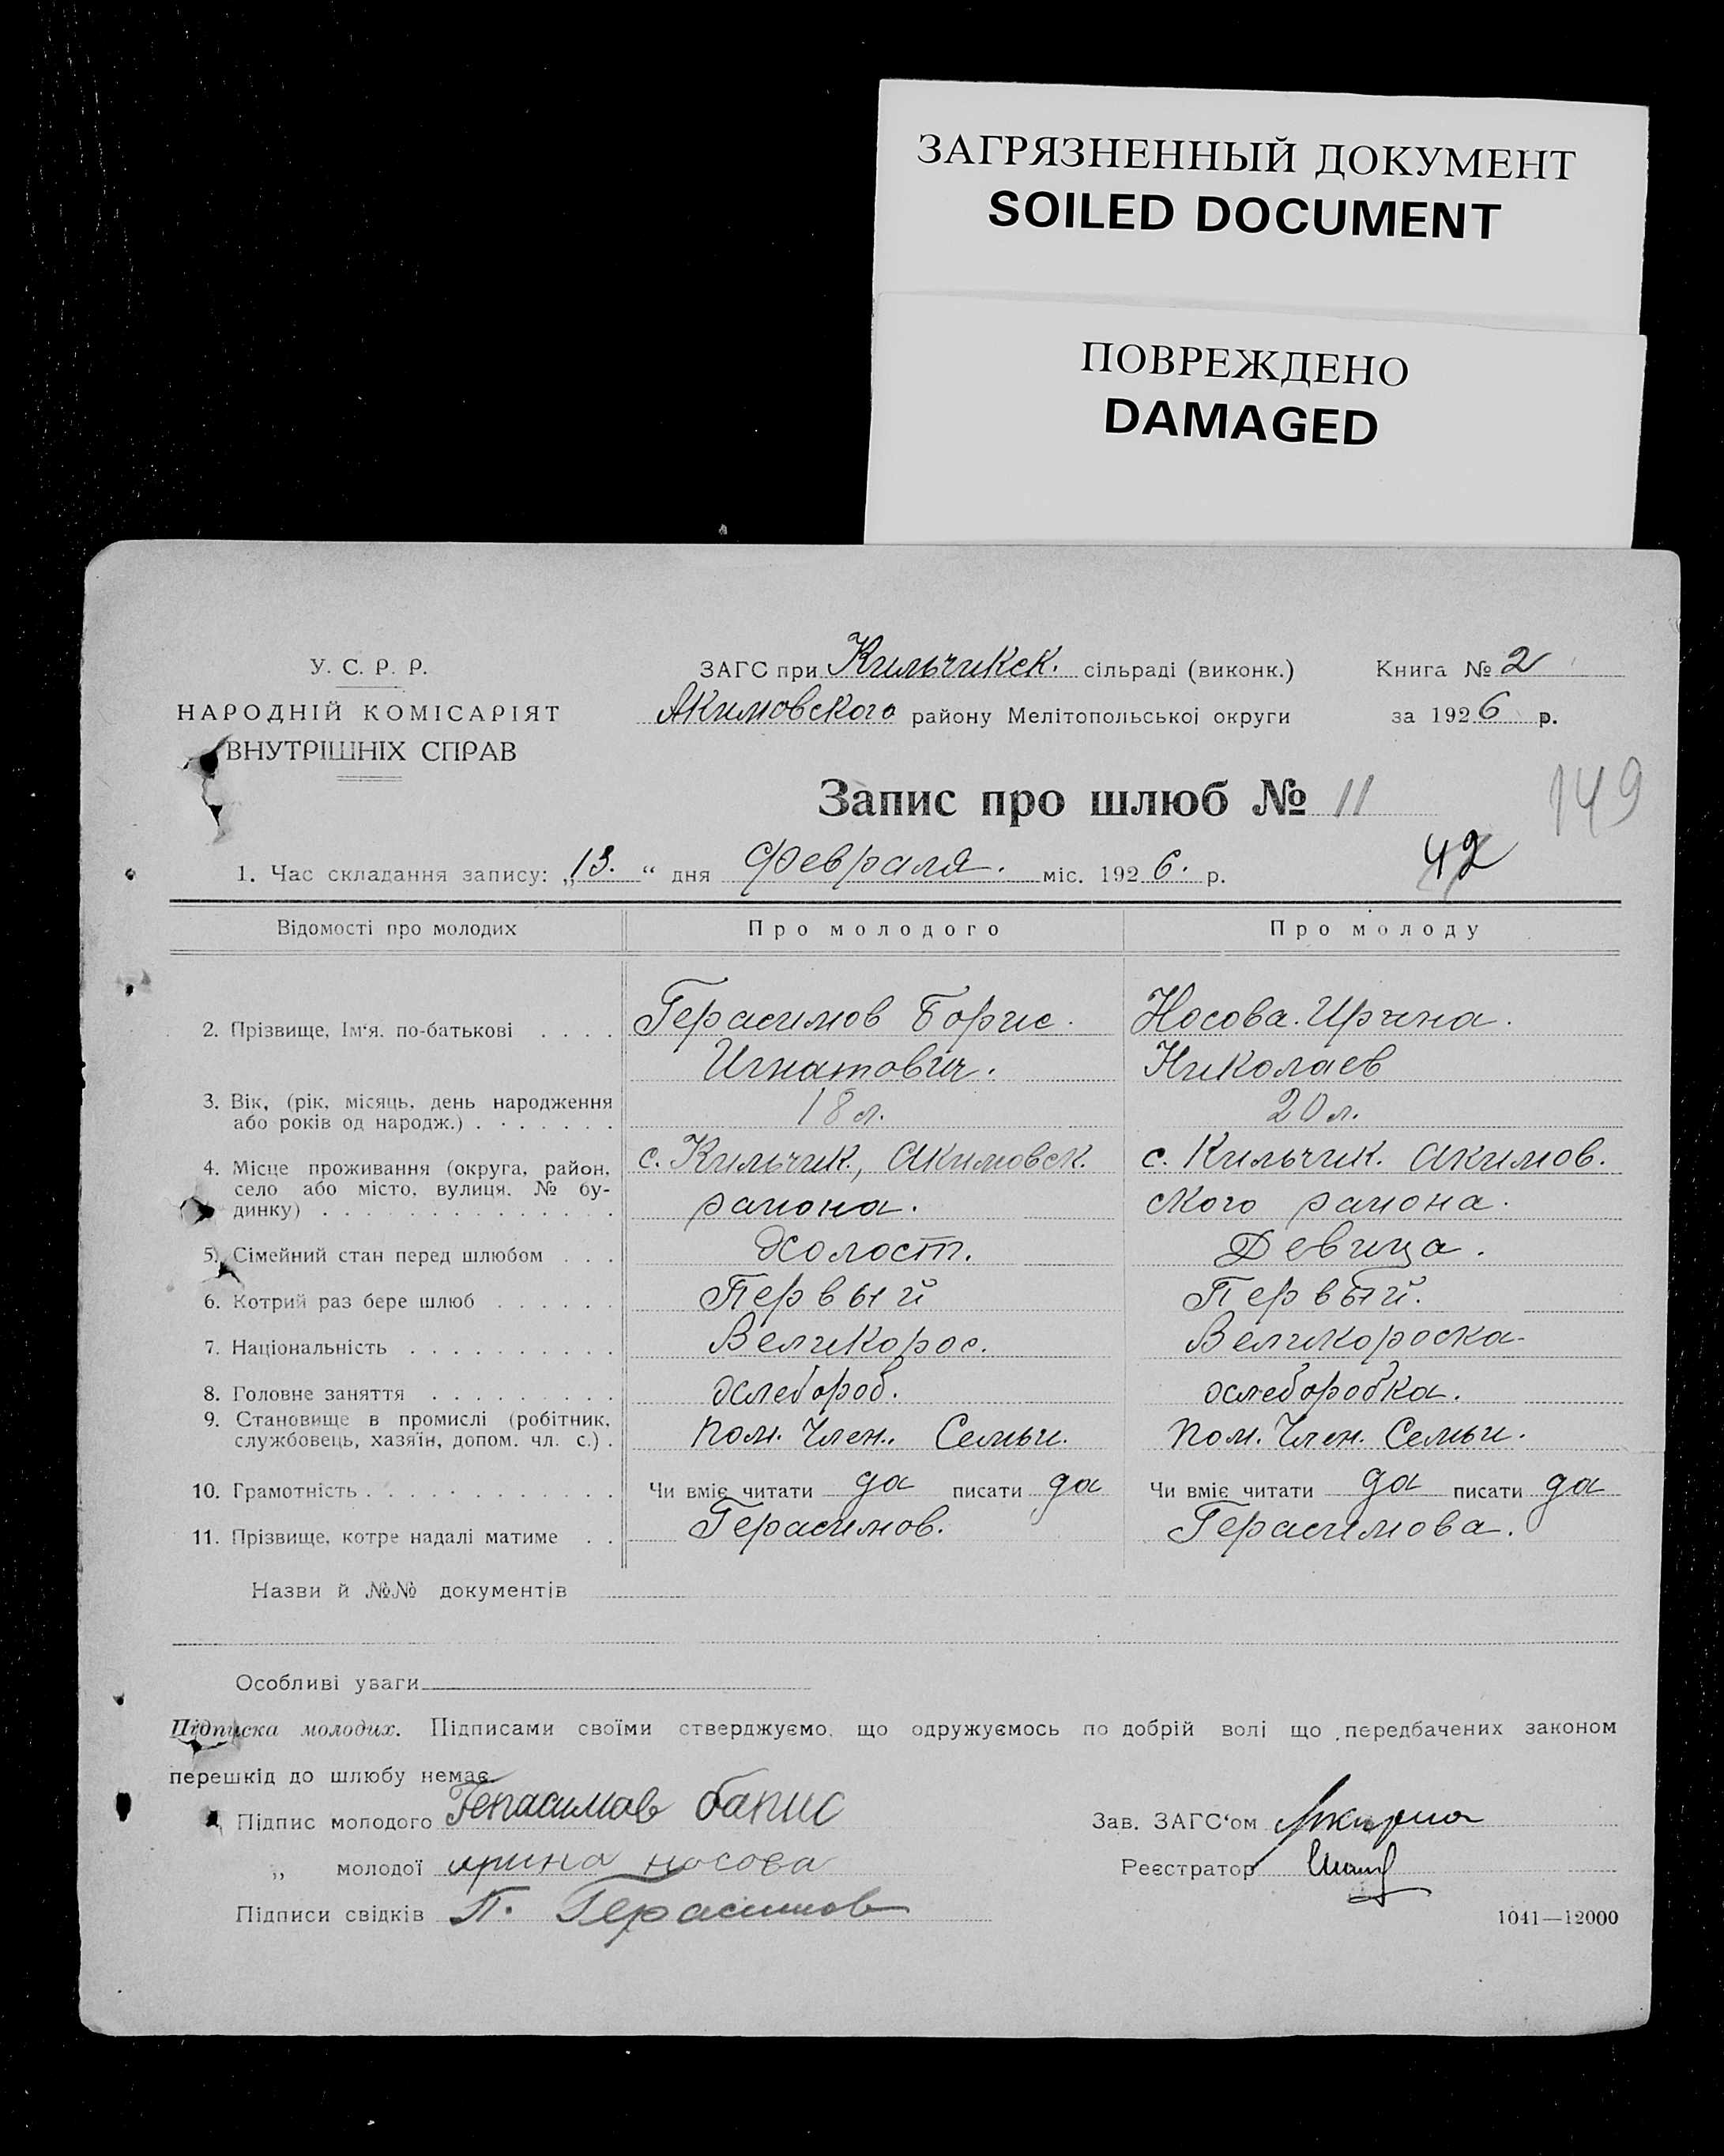 ЗАГРЯЗНЕННЫЙ ДОКУМЕНТ
SOILED DOCUMENT
ПОВРЕЖДЕНО
DAMAGED
У. С. Р. Р.
НАРОДНІЙ КОМІСАРІЯТ
ВНУТРІШНІХ СПРАВ
ЗАГС при Кильчикск. сільраді (виконк.) Книга № 2
Акимовского району Мелітопольської округи за 1926 р.
Запис про шлюб № 11
149
1. Час складання запису: „13.“ дня Февраля. міс. 1926. р.
42
Відомості про молодих Про молодого Про молоду
2. Прізвище, Ім'я. по-батькові . . . . Герасимов Борис. Носова. Ирина.
Игнатович. Николаев
3. Вік, (рік, місяць, день народження
або років од народж.) . . . . . . . 18 л. 20 л.
4. Місце проживання (округа, район, с. Кильчик., Акимовск. с. Кильчик. Акимов.
село або місто, вулиця, № бу-
динку) . . . . . . . . . . . . . . района. ского района.
5. Сімейний стан перед шлюбом . . . Холост. Девица.
6. Котрий раз бере шлюб . . . . . . Первый Первый.
7. Національність . . . . . . . . . . Великорос. Великороска
8. Головне заняття . . . . . . . . . хлебороб. хлеборобка.
9. Становище в промислі (робітник,
службовець, хазяїн, допом. чл. с.) . пом. Член. Семьи. пом. Член. Семьи.
10. Грамотність . . . . . . . . . . . . Чи вміє читати да писати да Чи вміє читати да писати да
11. Прізвище, котре надалі матиме . . Герасимов. Герасимова.
Назви й №№ документів
Особливі уваги
Підписка молодих. Підписами своїми стверджуємо, що одружуємось по добрій волі що передбачених законом
перешкід до шлюбу немає.
Підпис молодого Герасимов барис Зав. ЗАГС'ом
„ молодої ирина носова Реєстратор
Підписи свідків П. Герасимов
1041—12000